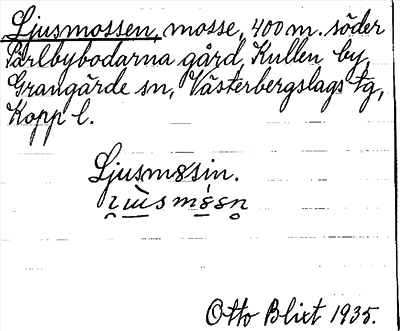 Ljusmossen, mosse, 400 m. söder
Pärlbybodarna gård, Kullen by,
Grangärde sn, Västerbergslags tg,
Kopp l.
Ljusmssin.
Otto Blixt 1935.